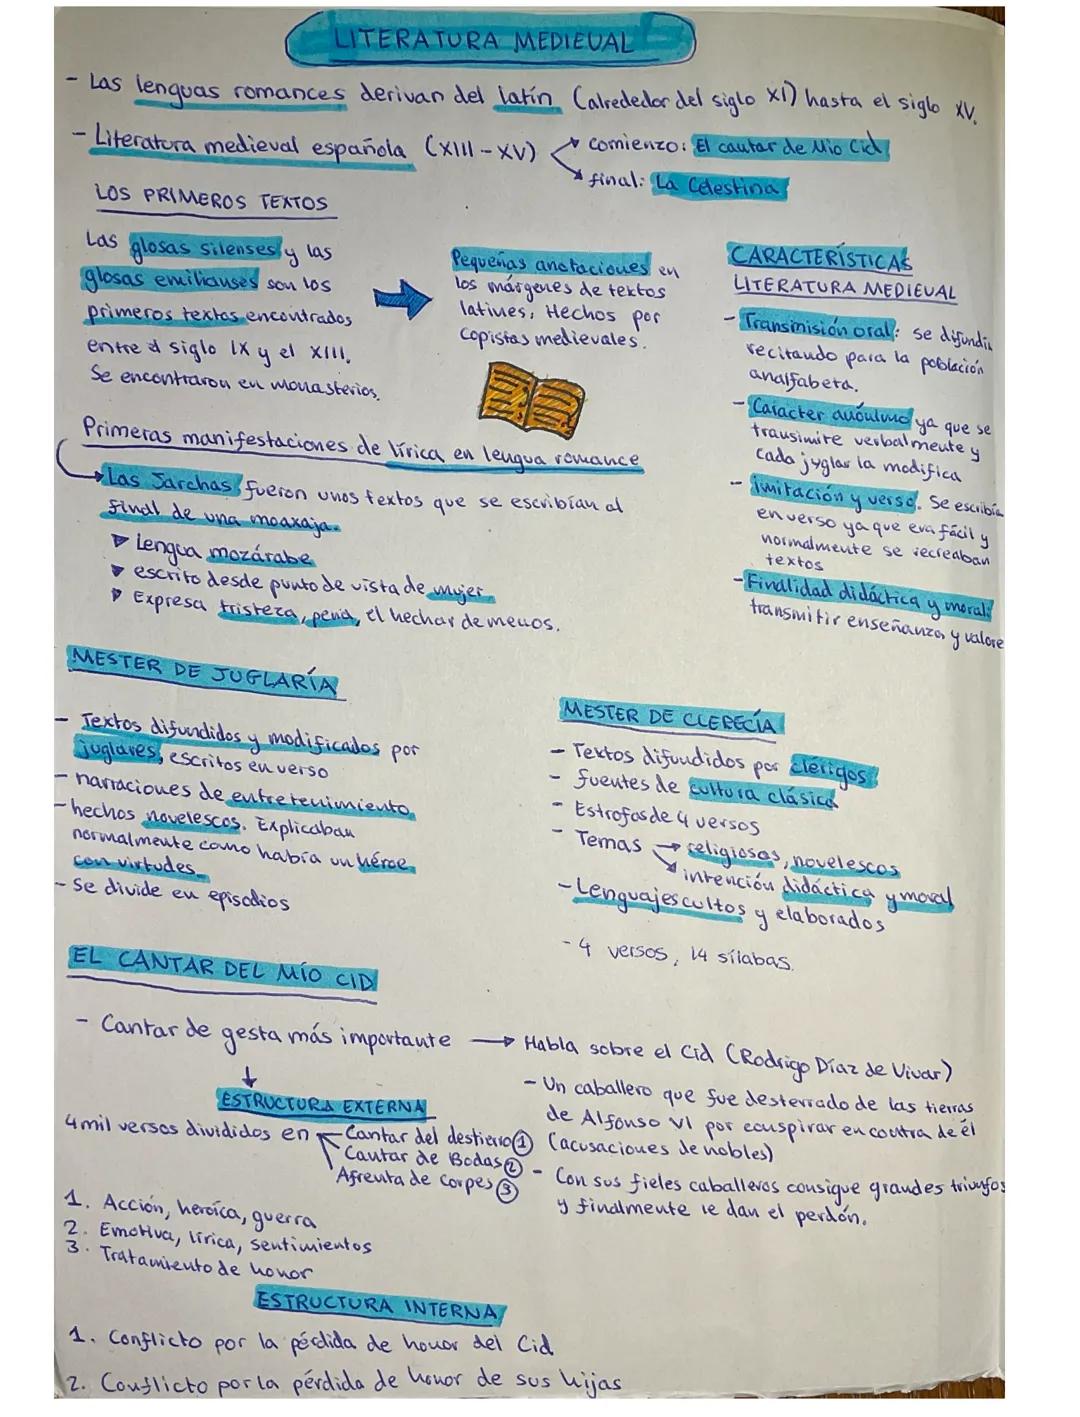 LITERATURA MEDIEVAL
- Las lenguas romances derivan del latín (alrededor del siglo XI) hasta el siglo XV.
- Literatura medieval española (XIII - XV)
comienzo: El cantar de Mio Cid
final: La Celestina
LOS PRIMEROS TEXTOS
Las glosas silenses y las
glosas emilianses son los
primeros textos encontrados
entre el siglo IX y el XIII.
Se encontraron en monasterios.
Pequeñas anotaciones en
los márgenes de textos
latines, Hechos por
copistas medievales.
CARACTERÍSTICAS
LITERATURA MEDIEVAL
- Transmisión oral: se difundía
recitando para la población
analfabeta.
- Carácter anónimo ya que se
transimite verbalmente y
cada juglar la modifica
- imitación y verso. Se escribía
en verso ya que era fácil y
normalmente se recreaban
textos
- Finalidad didáctica y moral:
transmitir enseñanza y valore
Primeras manifestaciones de lírica en lengua romance
Las Jarchas fueron unos textos que se escribían al
final de una moaxaja.
▸ Lengua mozárabe
▸ escrito desde punto de vista de mujer
▸ Expresa tristeza, pena, el hechar de menos.
MESTER DE JUGLARÍA
- Textos difundidos y modificados por
juglares, escritos en verso
- narraciones de entretenimiento
- hechos novelescos. Explicaban
normalmente como había un héroe
con virtudes.
- Se divide en episodios
MESTER DE CLERECÍA
- Textos difundidos por clérigos
- fuentes de cultura clásica
- Estrofas de 4 versos
- Temas → religiosos, novelescos
intención didáctica y moral
- Lenguajes cultos y elaborados
- 4 versos, 14 sílabas.
EL CANTAR DEL MÍO CID
- Cantar de gesta más importante → Habla sobre el Cid (Rodrigo Díaz de Vivar)
- Un caballero que fue desterrado de las tierras
de Alfonso VI por conspirar en contra de él
(acusaciones de nobles)
- Con sus fieles caballeros consigue grandes triunfos
y finalmente le dan el perdón.
ESTRUCTURA EXTERNA
4 mil versos divididos en
Cantar del destierro ①
Cantar de Bodas ②
Afrenta de Corpes ③
1. Acción, heroíca, guerra
2. Emotiva, lírica, sentimientos
3. Tratamiento de honor
ESTRUCTURA INTERNA
1. Conflicto por la pérdida de honor del Cid
2. Conflicto por la pérdida de honor de sus hijas